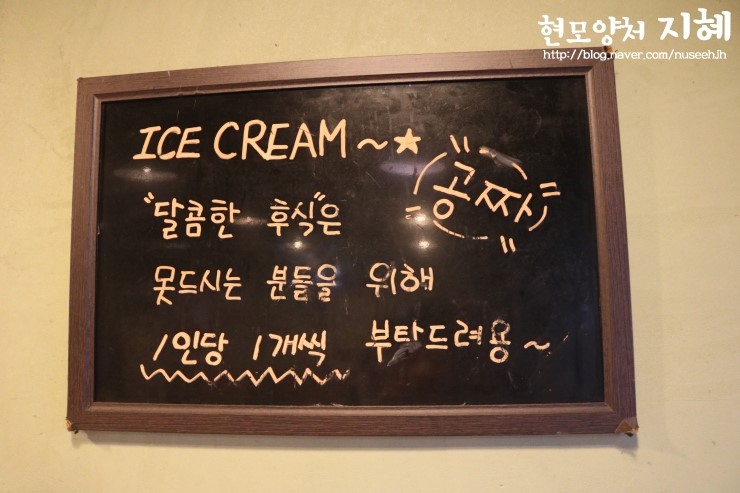 현모양처 지혜
http://blog.naver.com/nuseeh.ih
ICE CREAM ~★
공짜
"달콤한 후식"은
못드시는 분들을 위해
1인당 1개씩 부탁드려용~